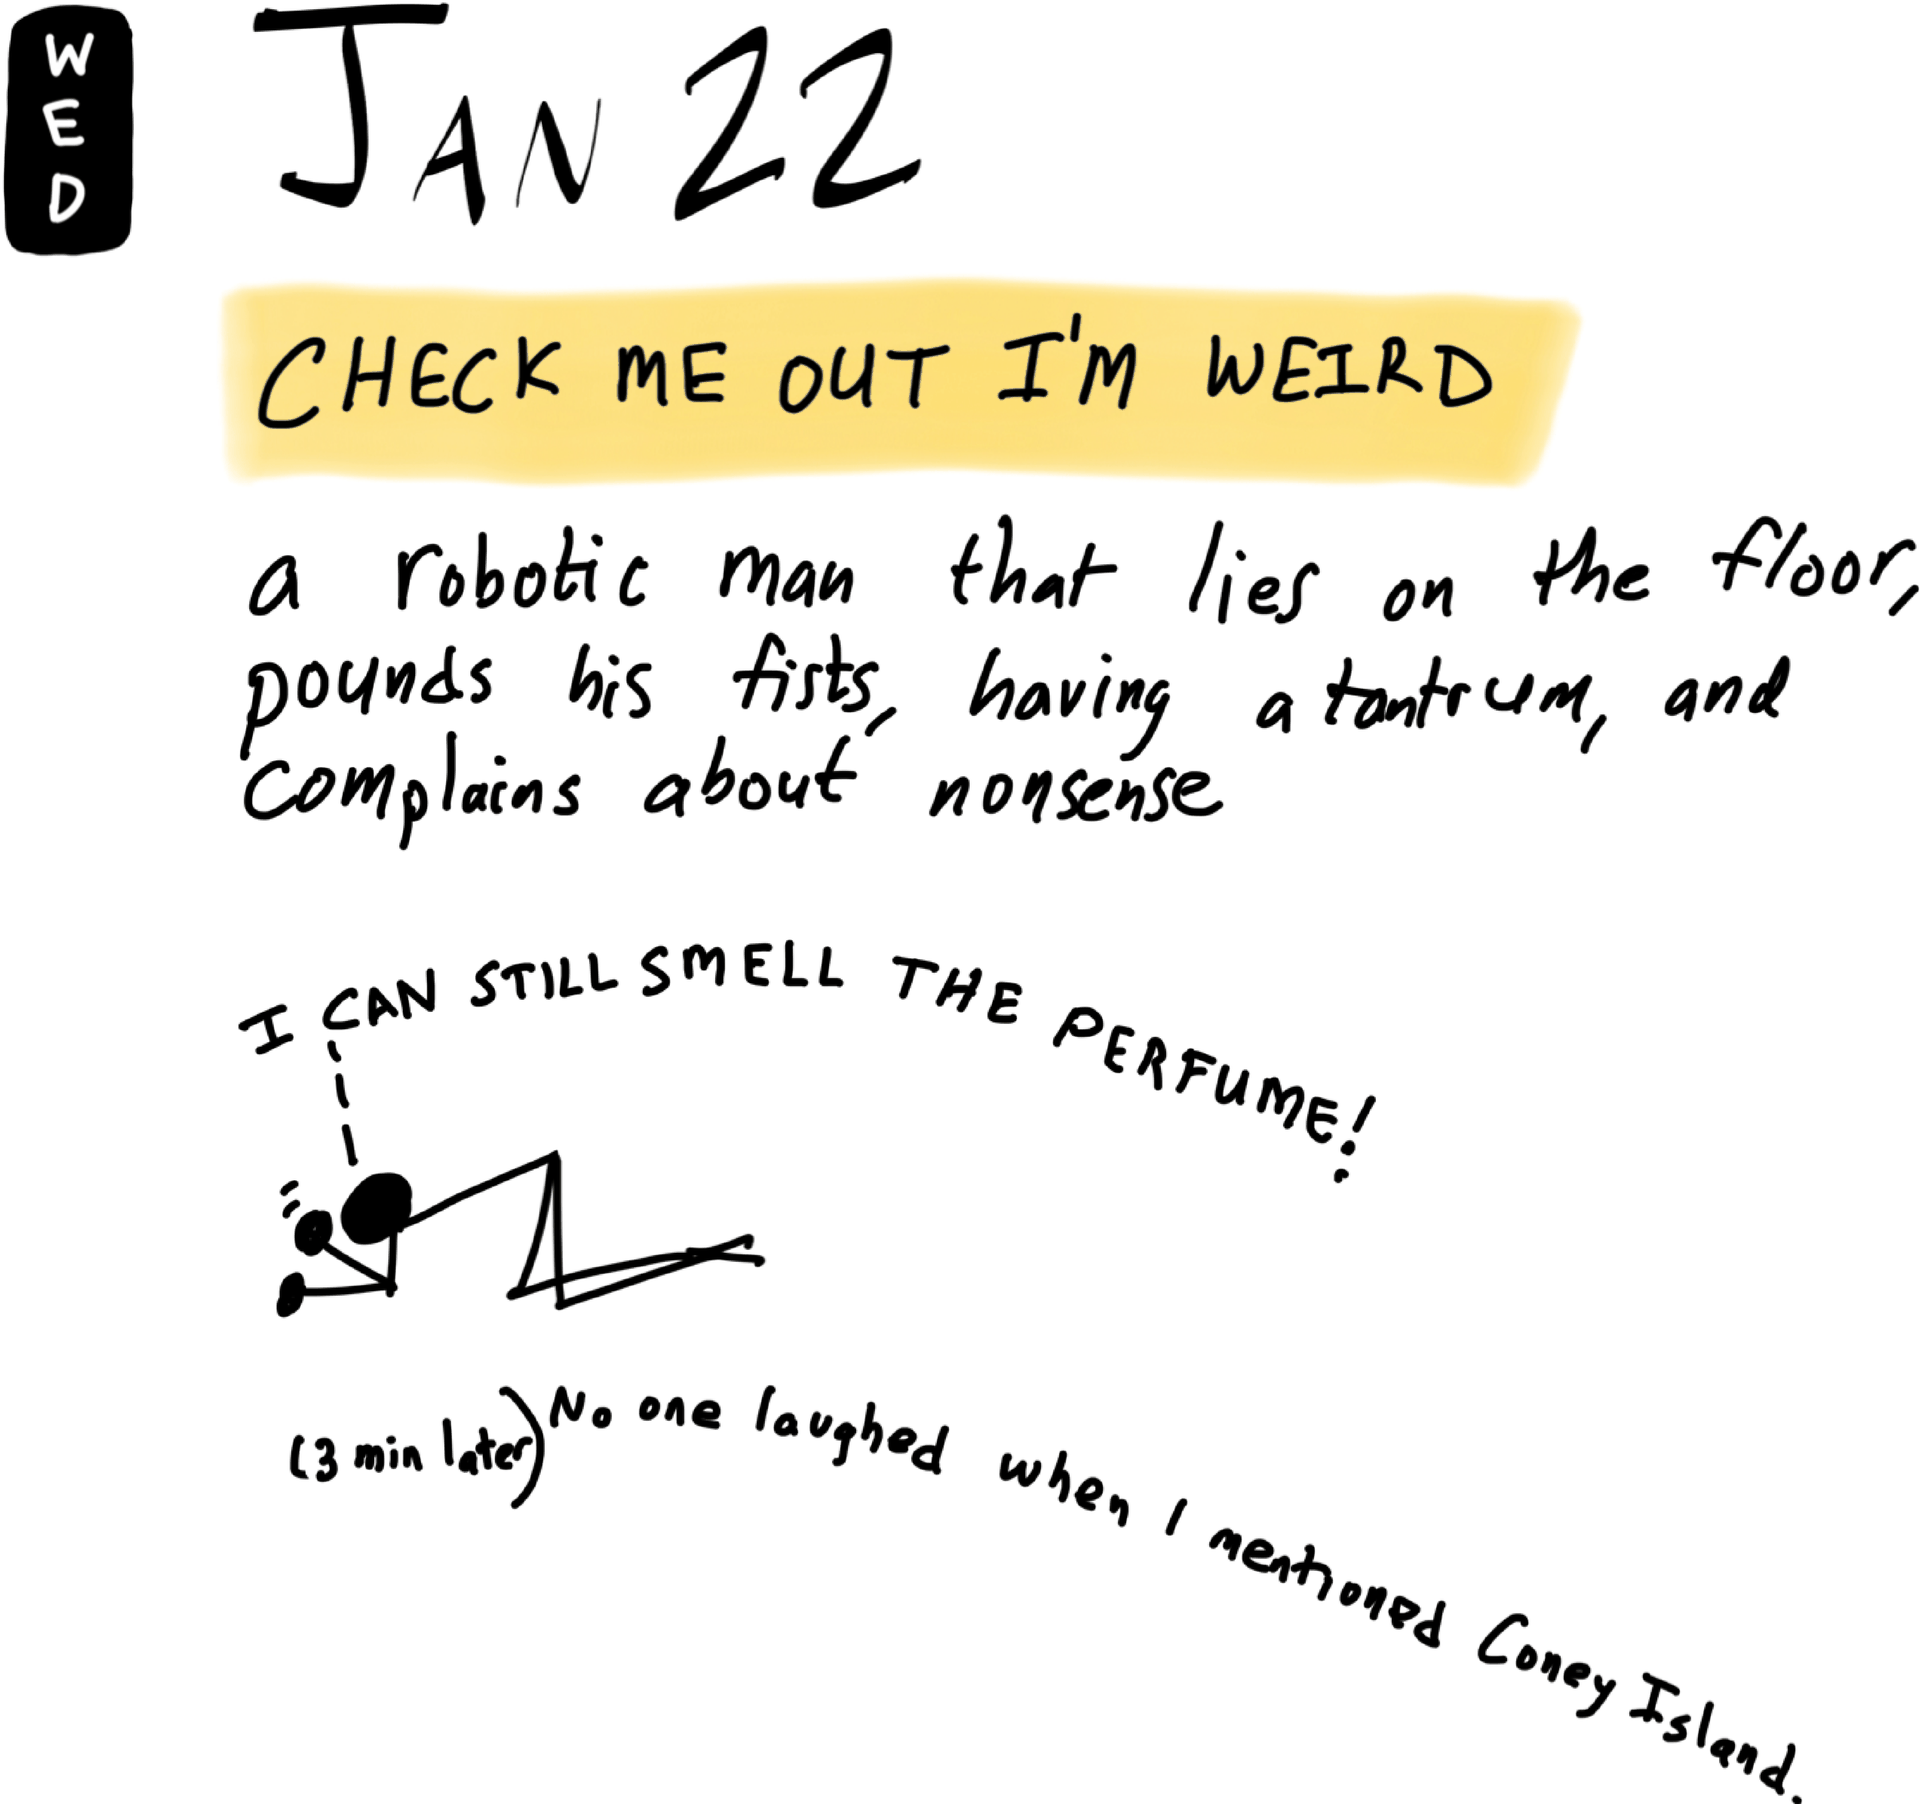 WED
JAN 22
CHECK ME OUT I'M WEIRD
a robotic man that lies on the floor,
pounds his fists, having a tantrum, and
complains about nonsense
I CAN STILL SMELL THE PERFUME!
(3 min later) No one laughed when I mentioned Coney Island.